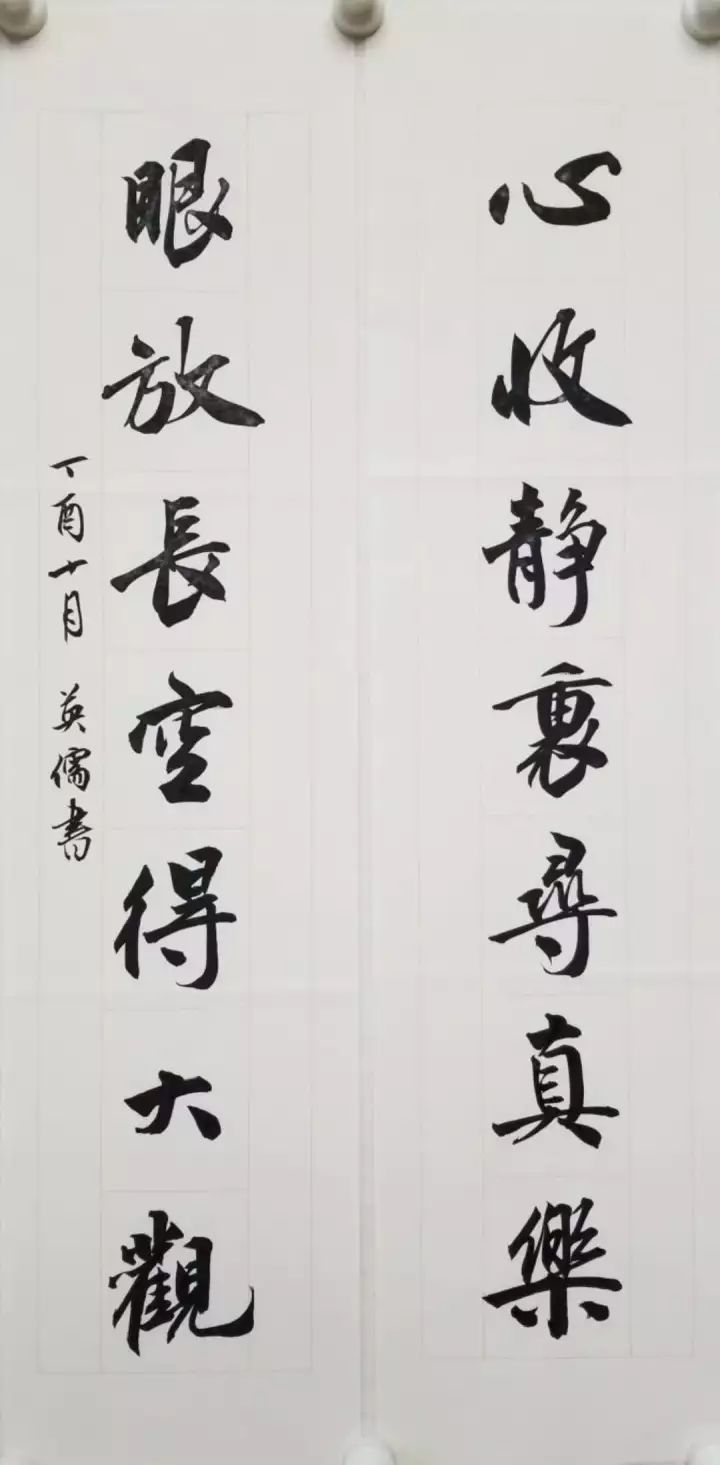 心收静裏尋真樂
眼放長空得大觀
丁酉十月 英儒書